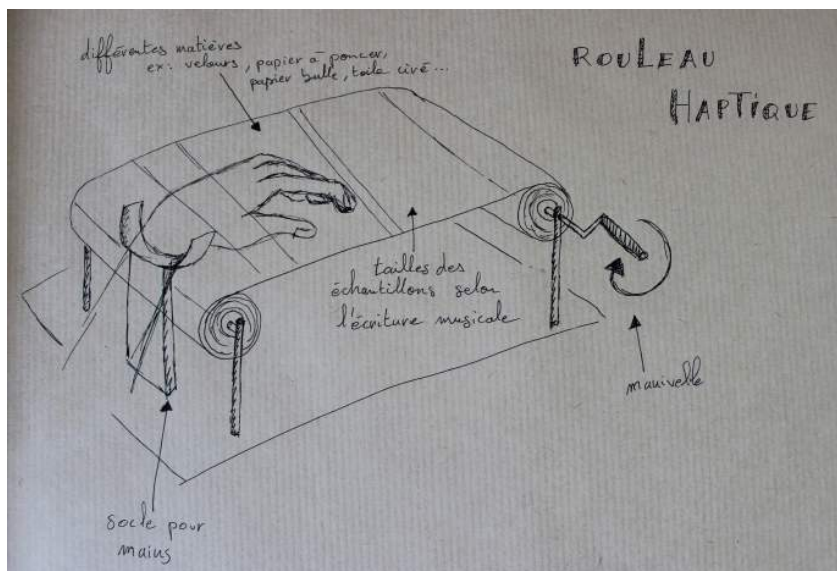 différentes matières
ex: velours, papier à poncer,
papier bulle, toile ciré...
ROULEAU
HAPTIQUE
tailles des
échantillons selon
l'écriture musicale
manivelle
socle pour
mains